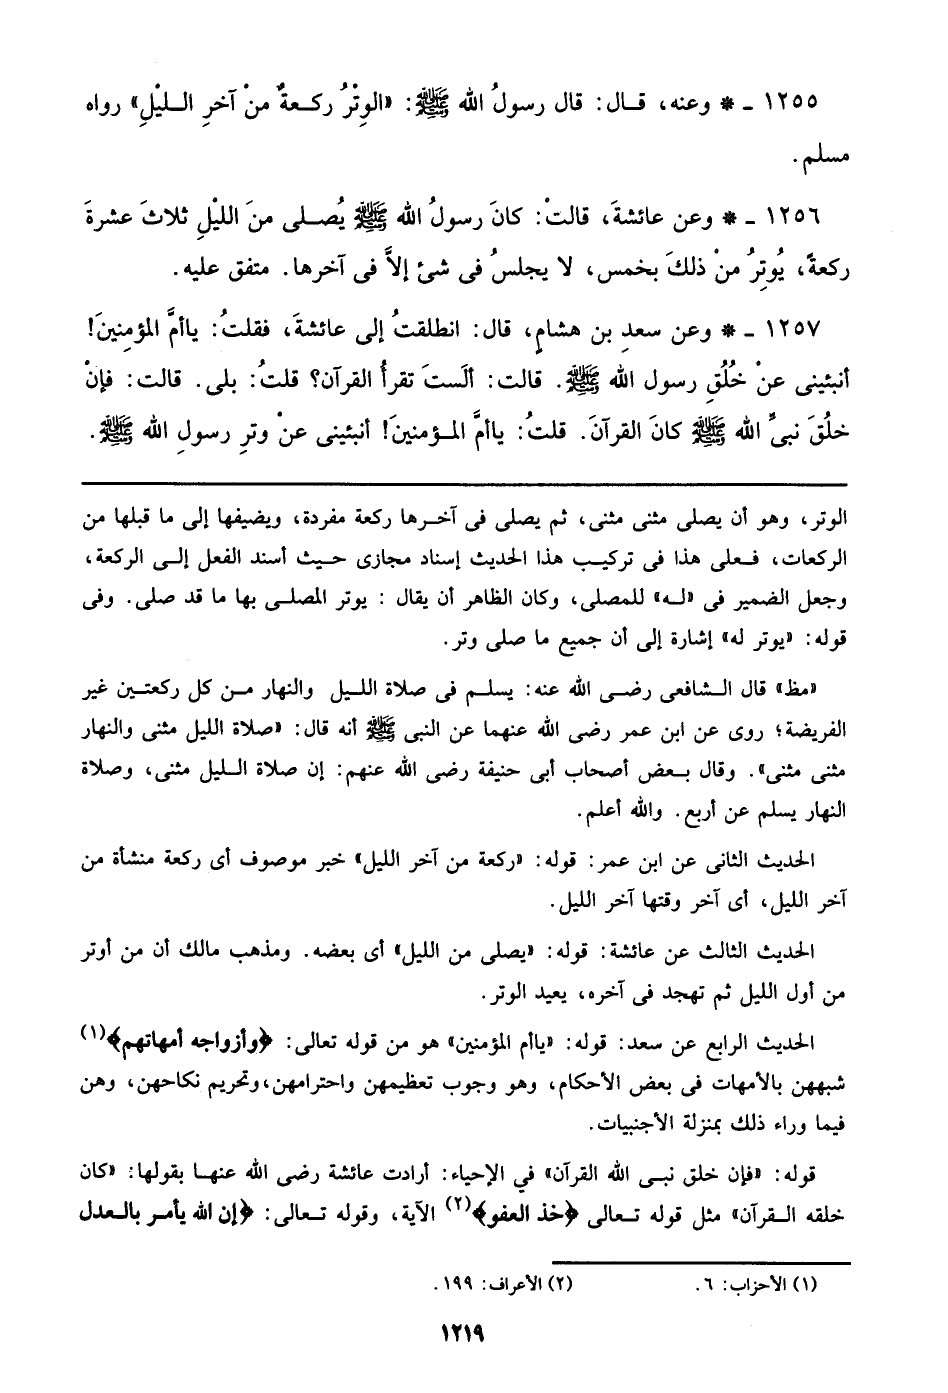 ١٢٥٥ ـ * وعنه، قـال: قال رسولُ الله ﷺ: «الوِتْرُ ركـعةٌ منْ آخرِ الـليْلِ» رواه
مسلم.
١٢٥٦ ـ * وعن عائشةَ، قالتْ: كانَ رسولُ الله ﷺ يُصـلى منَ الليْلِ ثلاثَ عشرةَ
ركعةً، يُوتِرُ منْ ذلكَ بخمس، لا يجلسُ فى شئ إلاَّ فى آخرها. متفق عليه.
١٢٥٧ ـ * وعن سعدِ بن هشامٍ، قال: انطلقتُ إلى عائشةَ، فقلتُ: ياأمَّ المؤمِنينَ!
أنبئينى عنْ خُلُقِ رسول الله ﷺ. قالت: ألَستَ تقرأُ القرآن؟ قلتُ: بلى. قالت: فإنْ
خلُقَ نبىِّ الله ﷺ كانَ القرآنَ. قلتُ: ياأمَّ المـؤمنينَ! أنبئينى عنْ وترِ رسولِ الله ﷺ.
الوتر، وهو أن يصلى مثنى مثنى، ثم يصلى فى آخـرها ركعة مفردة، ويضيفها إلى ما قبلها من
الركعات، فـعلى هذا فى تركيـب هذا الحديث إسناد مجازى حـيث أسند الفعل إلـى الركعة،
وجعل الضمير فى «لـه» للمصلى، وكان الظاهر أن يقال : يوتر المصلـى بها ما قد صلى. وفى
قوله: «يوتر له» إشارة إلى أن جميع ما صلى وتر.
«مظ» قال الـشافعى رضـى الله عنه: يسلـم فى صلاة الليـل والنهار مـن كل ركعتـين غير
الفريضة؛ روى عن ابن عمر رضى الله عنهما عن النبى ﷺ أنه قال: «صلاة الليل مثنى والنهار
مثنى مثنى». وقال بـعض أصحاب أبى حنيفة رضى الله عنهم: إن صلاة الـليل مثنى، وصلاة
النهار يسلم عن أربع. والله أعلم.
الحديث الثانى عن ابن عمر: قوله: «ركعة من آخر الليل» خبر موصوف أى ركعة منشأة من
آخر الليل، أى آخر وقتها آخر الليل.
الحديث الثالث عن عائشة: قوله: «يصلى من الليل» أى بعضه. ومذهب مالك أن من أوتر
من أول الليل ثم تهجد فى آخره، يعيد الوتر.
الحديث الرابع عن سعد: قوله: «ياأم المؤمنين» هو من قوله تعالى: ﴿وأزواجه أمهاتهم﴾(١)
شبههن بالأمهات فى بعض الأحكام، وهو وجوب تعظيمهن واحترامهن،وتحريم نكاحهن، وهن
فيما وراء ذلك بمنزلة الأجنبيات.
قوله: «فإن خلق نبـى الله القرآن» في الإحياء: أرادت عائشة رضى الله عنهـا بقولها: «كان
خلقه الـقرآن» مثل قوله تـعالى ﴿خذ العفو﴾(٢) الآية، وقوله تـعالى: ﴿إن الله يأمـر بالـعدل
(١) الأحزاب: ٦. (٢) الأعراف: ١٩٩.
١٢١٩